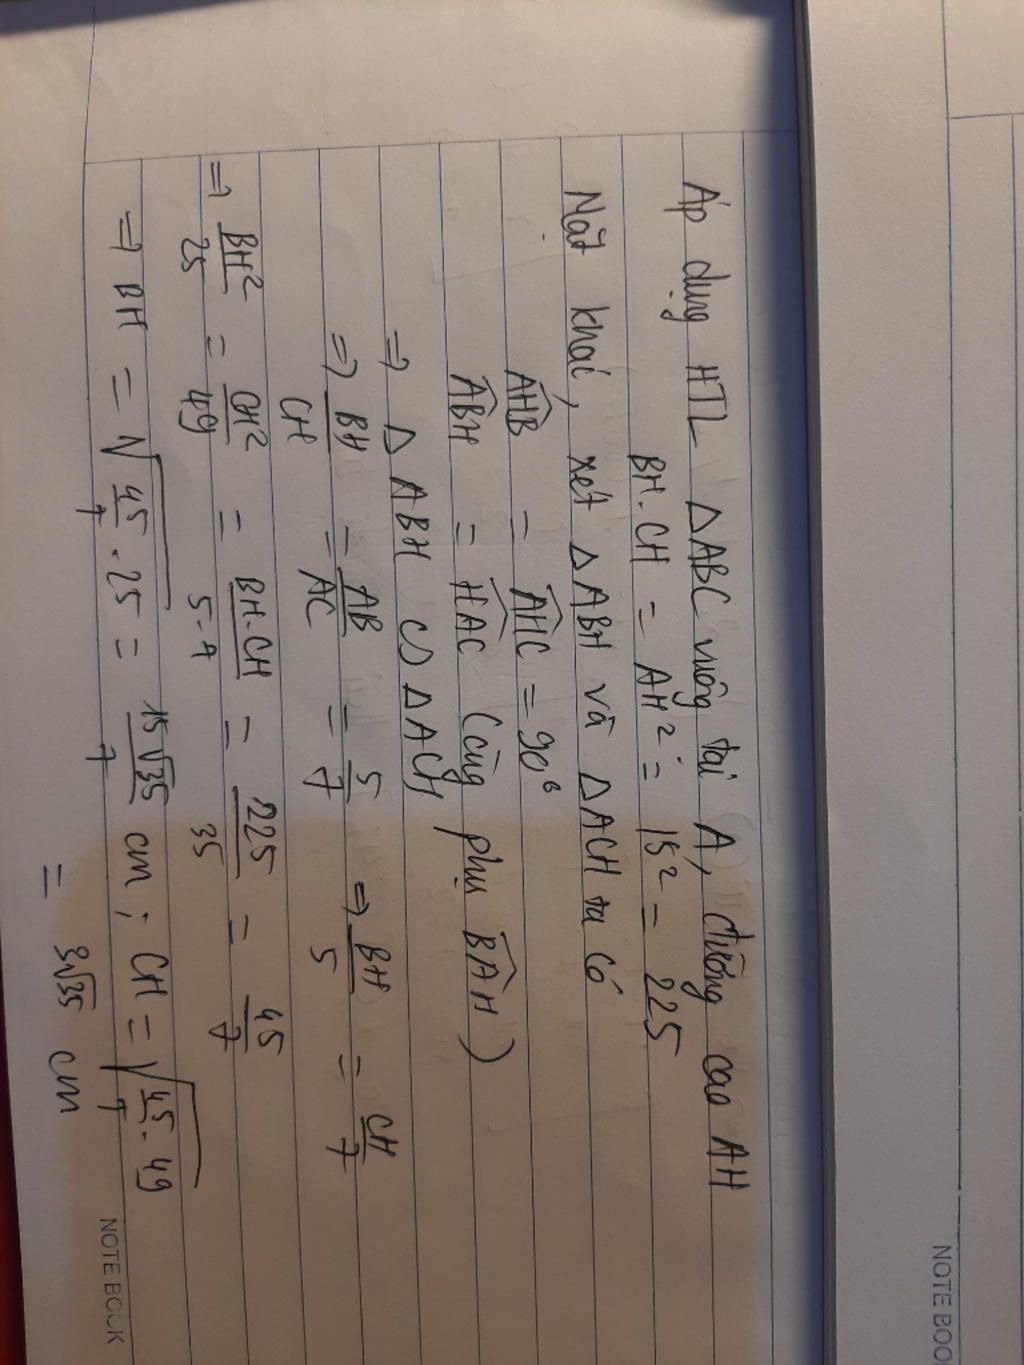 Áp dụng HTL △ABC vuông tại A, đường cao AH
BH.CH = AH² = 15² = 225
Mặt khác, xét △ABH và △ACH ta có
AHB = AHC = 90⁰
ABH = HAC (cùng phụ BAH)
⇒ △ABH ∽ △ACH
⇒ BH/CH = AB/AC = 5/7 ⇒ BH/5 = CH/7
⇒ BH²/25 = CH²/49 = BH.CH/5.7 = 225/35 = 45/7
⇒ BH = √(45/7 . 25) = 15√35/7 cm ; CH = √(45/7 . 49)
= 3√35 cm
NOTE BOOK
NOTE BOO